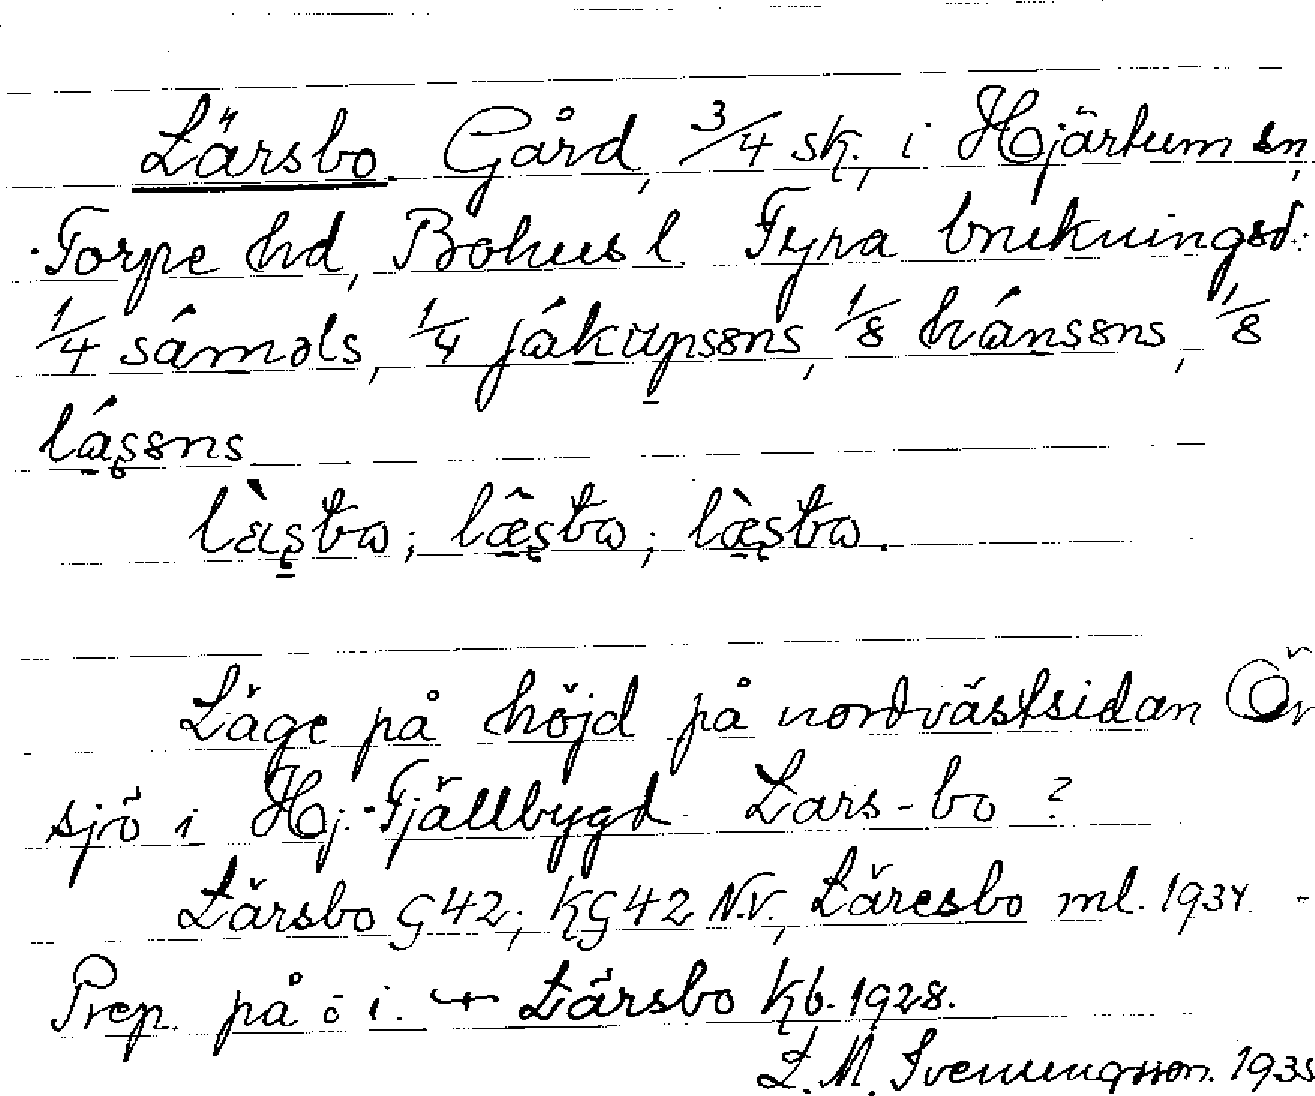 Lärsbo. Gård, 3/4 sk., i Hjärtum sn,
Torpe hd, Bohus l. Fyra brukningsd:
1/4 sáməls, 1/4 jákupssns, 1/8 hánssns, 1/8
lássns
Läge på höjd på nordvästsidan Ör
sjö i Hj. Fjällbygd. Lars-bo?
Lärsbo G42; KG42 N.V., Läresbo ml. 1934. -
Prep. på o i. Lärsbo Kb. 1928.
L. M. Svenungsson. 1935